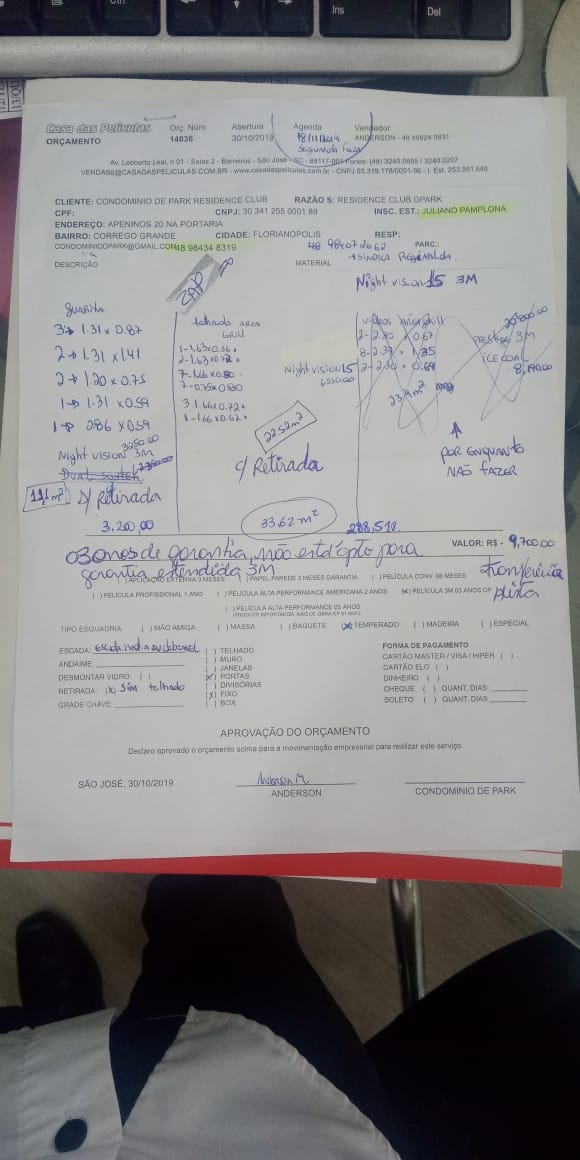 Ins
Del
Casa das Películas
Orç. Núm
Abertura
Agenda
Vendedor
ORÇAMENTO
14036
30/10/2019
18/11/2019
ANDERSON - 48 99924 0831
Segunda Feira
Av. Leoberto Leal, n 01 - Salas 2 - Barreiros - São José - SC - 88117-001 Fones: (48) 3240.0605 / 3240.0207
VENDAS6@CASADASPELICULAS.COM.BR - www.casadaspeliculas.com.br - CNPJ 03.319.178/0001-98 - I. Est. 253.951.640
CLIENTE: CONDOMINIO DE PARK RESIDENCE CLUB
RAZÃO S: RESIDENCE CLUB DPARK
CPF:
CNPJ: 30 341 255 0001 89
INSC. EST.: JULIANO PAMPLONA
ENDEREÇO: APENINOS 20 NA PORTARIA
BAIRRO: CORREGO GRANDE
CIDADE: FLORIANOPOLIS
RESP:
CONDOMINIODOPARK@GMAIL.COM 48 98434 8319
48 984072662
PARC.:
+ SINDICA Reginalda
DESCRIÇÃO
MATERIAL
Night vision 15 3M
GUARITA
3 → 1.31 x 0.87
2 → 1.31 x 1.41
2 → 1.20 x 0.75
1 → 1.31 x 0.59
1 → 0.86 x 0.59
3250.00
Night vision 3M
11,1 m²
S/ Retirada
3.200,00
telhado AREA
GRILL
1 - 1.63x0.56
2 - 1.63x0.72
7 - 1.66x0.80
7 - 0.75x0.80
3. 1.66x0.72
1 - 1.66x0.62
Night vision 15
6500.00
22.52 m²
C/ Retirada
33.62 m²
2 - 2.30 x 0.67
8 - 2.39 x 1.35
2 - 2.30 x 0.69
23.4 m²
Prestige 3M
ICE COOL
8,190.00
POR ENQUANTO
NÃO FAZER
288,510
VALOR: R$ - 9,700.00
03 anos de garantia, não está apto para
garantia estendida 3M
Tranferência
( ) APLICAÇÃO EXTERNA 3 MESES ( ) PAPEL PAREDE 3 MESES GARANTIA ( ) PELÍCULA CONV. 06 MESES
( ) PELÍCULA PROFISSIONAL 1 ANO ( ) PELÍCULA ALTA PERFORMANCE AMERICANA 2 ANOS (X) PELÍCULA 3M 03 ANOS CP
( ) PELÍCULA ALTA PERFORMANCE 05 ANOS
(PRODUTO IMPORTADOR, MÃO DE OBRA CP 01 ANO)
TIPO ESQUADRIA ( ) MÃO AMIGA ( ) MASSA ( ) BAQUETE (X) TEMPERADO ( ) MADEIRA ( ) ESPECIAL
ESCADA:
( ) TELHADO
FORMA DE PAGAMENTO
ANDAIME:
( ) MURO
CARTÃO MASTER / VISA / HIPER ( )
( ) JANELAS
CARTÃO ELO ( )
DESMONTAR VIDRO: ( )
(X) PORTAS
DINHEIRO ( )
RETIRADA (X) Sim telhado
( ) DIVISÓRIAS
CHEQUE ( ) QUANT. DIAS:
(X) FIXO
BOLETO ( ) QUANT. DIAS
GRADE CHAVE:
( ) BOX
APROVAÇÃO DO ORÇAMENTO
Declaro aprovado o orçamento acima para a movimentação empresarial para realizar este serviço
SÃO JOSÉ, 30/10/2019
Anderson M.
ANDERSON
CONDOMINIO DE PARK